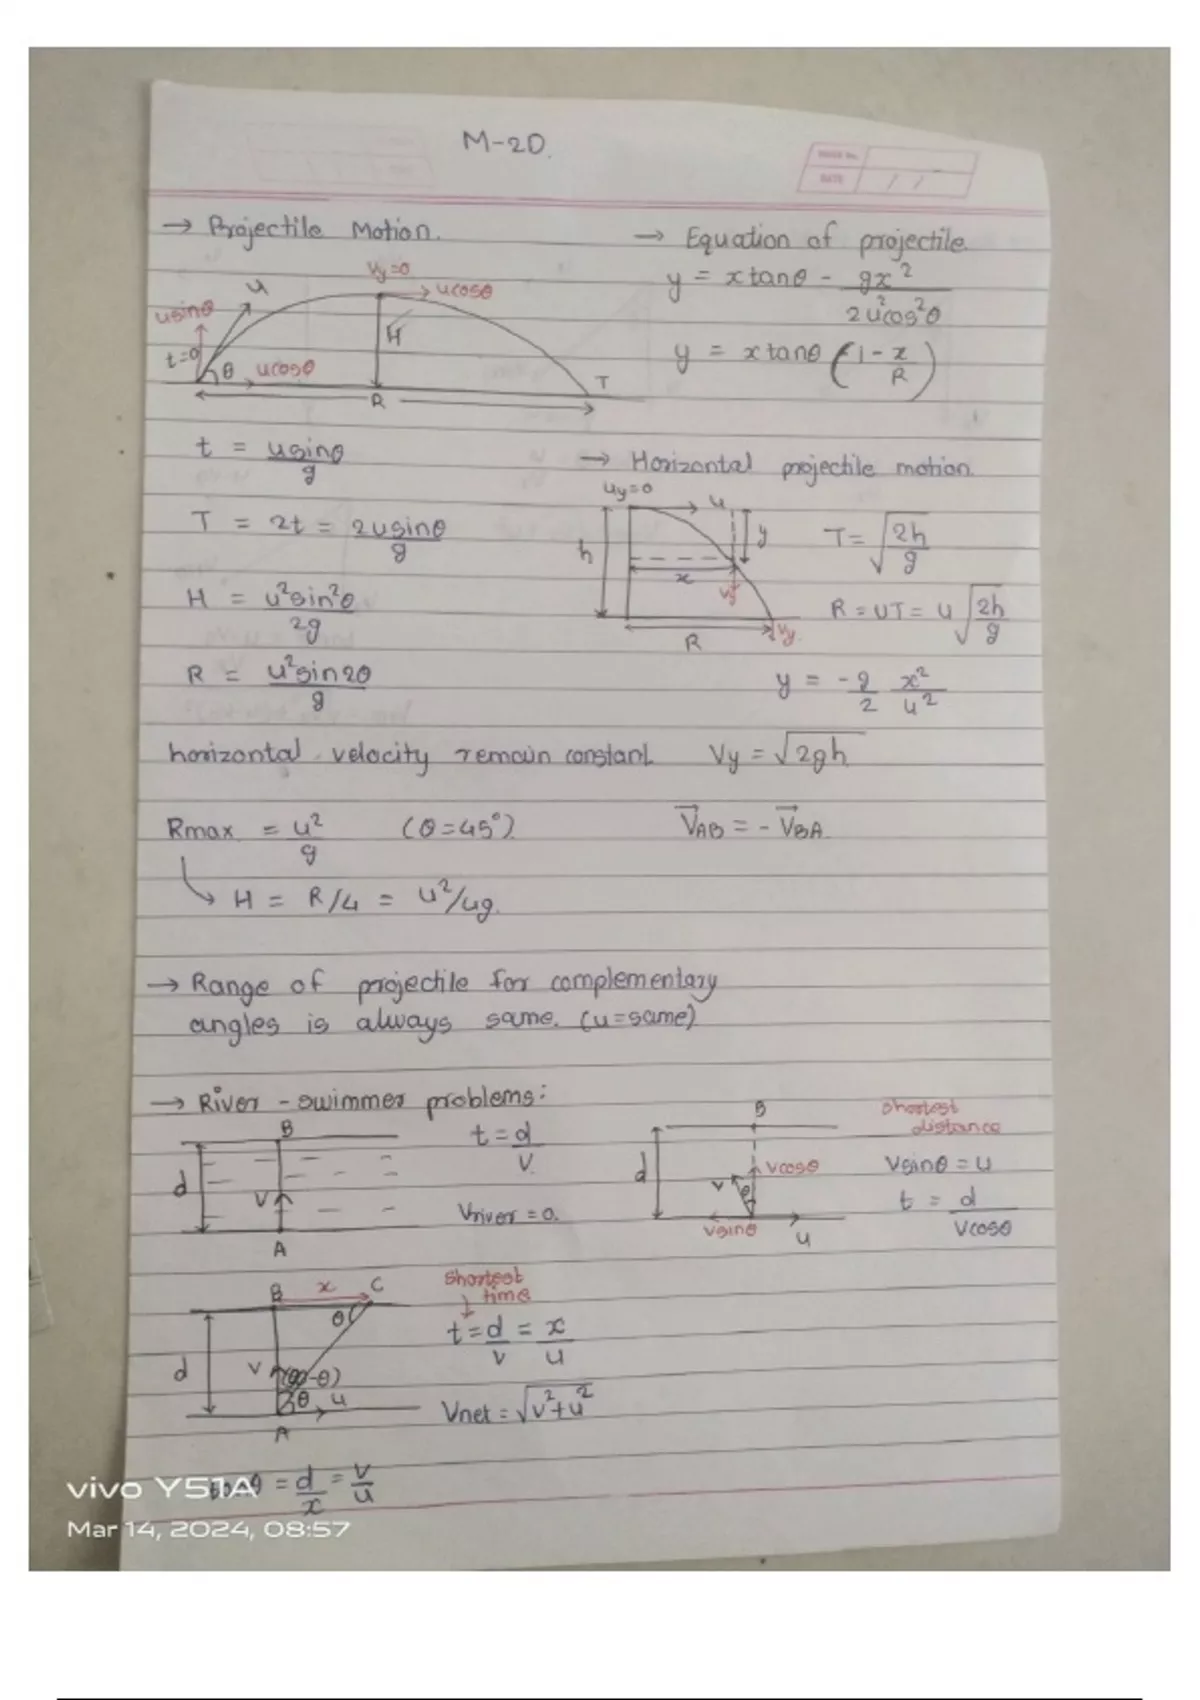 M-2D.
PAGE No.
DATE / /
→ Projectile Motion.
Vy=0
u
ucosθ
usinθ
H
t=0
θ ucosθ
T
R
t = usinθ/g
T = 2t = 2usinθ/g
H = u²sin²θ/2g
R = u²sin2θ/g
horizontal velocity remain constant.
Rmax = u²/g (θ=45°)
↳ H = R/4 = u²/4g.
→ Equation of projectile.
y = xtanθ - gx²/2u²cos²θ
y = xtanθ (1 - x/R)
→ Horizontal projectile motion.
uy=0
u
y
h
x
Vy
R
Vy
T = √2h/g
R = uT = u√2h/g
y = -g/2 x²/u²
Vy = √2gh
V⃗AB = - V⃗BA
→ Range of projectile for complementary
angles is always same. (u=same)
→ River - swimmer problems:
B
d
V
A
t = d/V.
Vriver = 0.
B
d
Vcosθ
v
θ
Vsinθ
u
shortest
distance
Vsinθ = u
t = d/Vcosθ
B x C
θ
d
V
(90-θ)
θ u
A
shortest
time
t = d/v = x/u
Vnet = √v²+u²
tanθ = d/x = V/u
vivo Y51A
Mar 14, 2024, 08:57